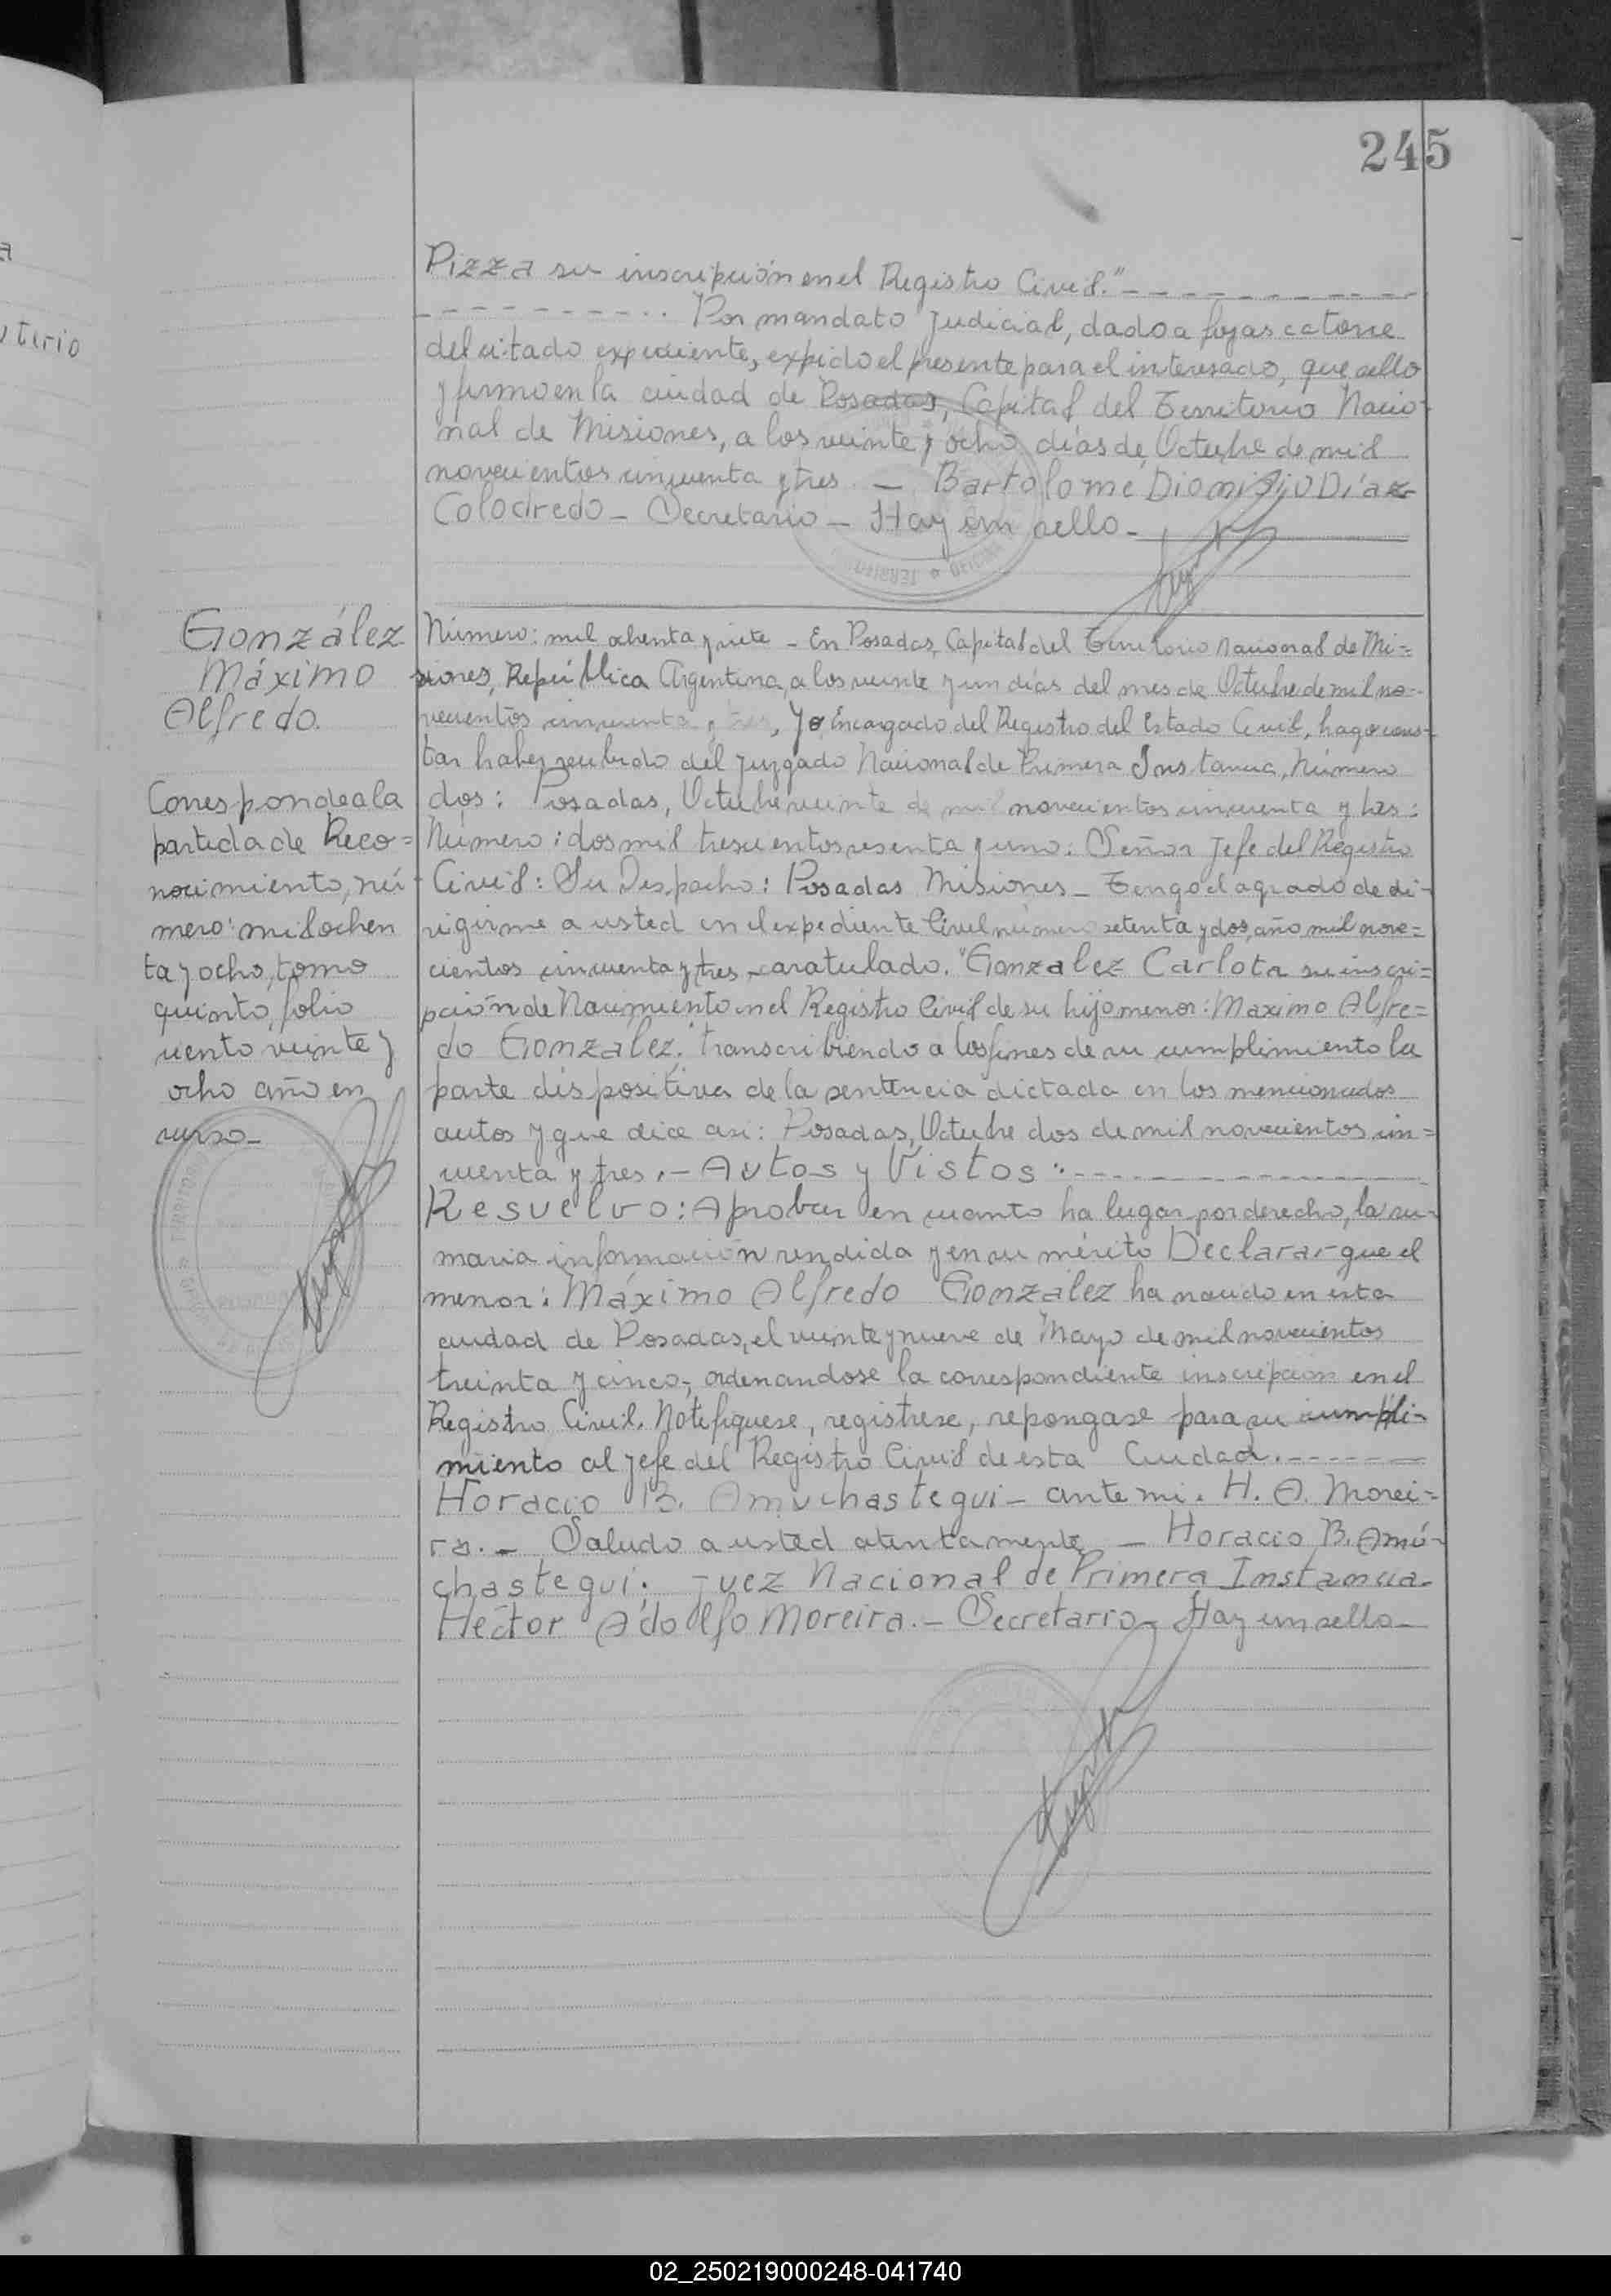 245
Pizza su inscripción en el Registro Civil."
Por mandato Judicial, dado a fojas catorce
del citado expediente, expido el presente para el interesado, que sello
y firmo en la ciudad de Posadas, Capital del Territorio Nacio-
nal de Misiones, a los veinte y ocho días de Octubre de mil
novecientos cincuenta y tres. — Bartolome Dionisio Díaz
Colodredo — Secretario — Hay un sello —
González
Máximo
Alfredo.
Corresponde a la
partida de Reco=
nocimiento, nú-
mero: mil ochen
ta y ocho, tomo
quinto, folio
ciento veinte y
ocho año en
curso —
Número: mil ochenta y siete — En Posadas, Capital del Territorio Nacional de Mi=
siones, República Argentina, a los veinte y un días del mes de Octubre de mil no=
vecientos cincuenta y tres, Yo Encargado del Registro del Estado Civil, hago cons-
tar haber recibido del Juzgado Nacional de Primera Instancia, Número
dos: Posadas, Octubre veinte de mil novecientos cincuenta y tres:
Número: dos mil trescientos sesenta y uno: Señor Jefe del Registro
Civil: Su Despacho: Posadas Misiones — Tengo el agrado de di-
rigirme a usted en el expediente Civil número setenta y dos, año mil nove=
cientos cincuenta y tres, caratulado. "Gonzalez Carlota su inscri=
pción de Nacimiento en el Registro Civil de su hijo menor: Maximo Alfre=
do González," transcribiendo a los fines de su cumplimiento la
parte dispositiva de la sentencia dictada en los mencionados
autos y que dice asi: Posadas, Octubre dos de mil novecientos cin=
cuenta y tres. — Autos y Vistos:
Resuelvo: Aprobar en cuanto ha lugar por derecho, la su-
maria información rendida y en su mérito Declarar que el
menor: Máximo Alfredo González ha nacido en esta
ciudad de Posadas, el veinte y nueve de Mayo de mil novecientos
treinta y cinco, ordenandose la correspondiente inscripción en el
Registro Civil. Notifiquese, registrese, repongase para su cumpli-
miento al Jefe del Registro Civil de esta Ciudad.
Horacio B. Amuchastegui — ante mi. H. A. Morei=
ra. — Saludo a usted atentamente — Horacio B. Amú-
chastegui; Juez Nacional de Primera Instancia.
Héctor Adolfo Moreira. — Secretario — Hay un sello —
02_250219000248-041740